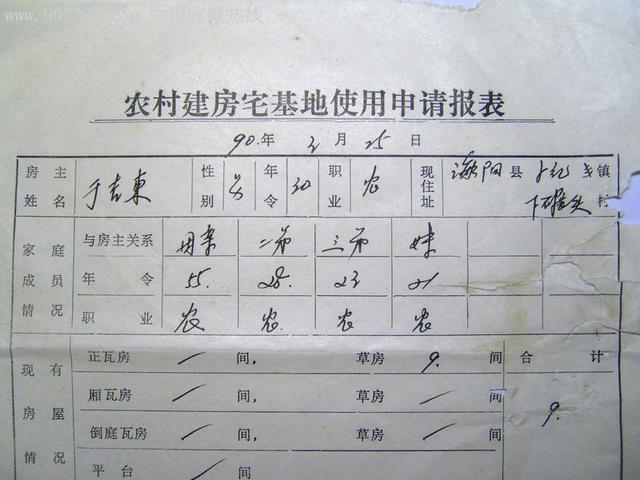 农村建房宅基地使用申请报表
90年 2月 25日
房主姓名 于吉東 性别 男 年令 30 职业 农 现住址 濮阳县 乡镇 村
家庭成员情况 与房主关系 母亲 二弟 三弟 妹
年令 55. 28. 23 21
职业 农 农. 农 农
现有房屋情况 正瓦房 / 间, 草房 9. 间 合计
厢瓦房 / 间, 草房 / 间 9.
倒庭瓦房 / 间, 草房 / 间
平台 / 间